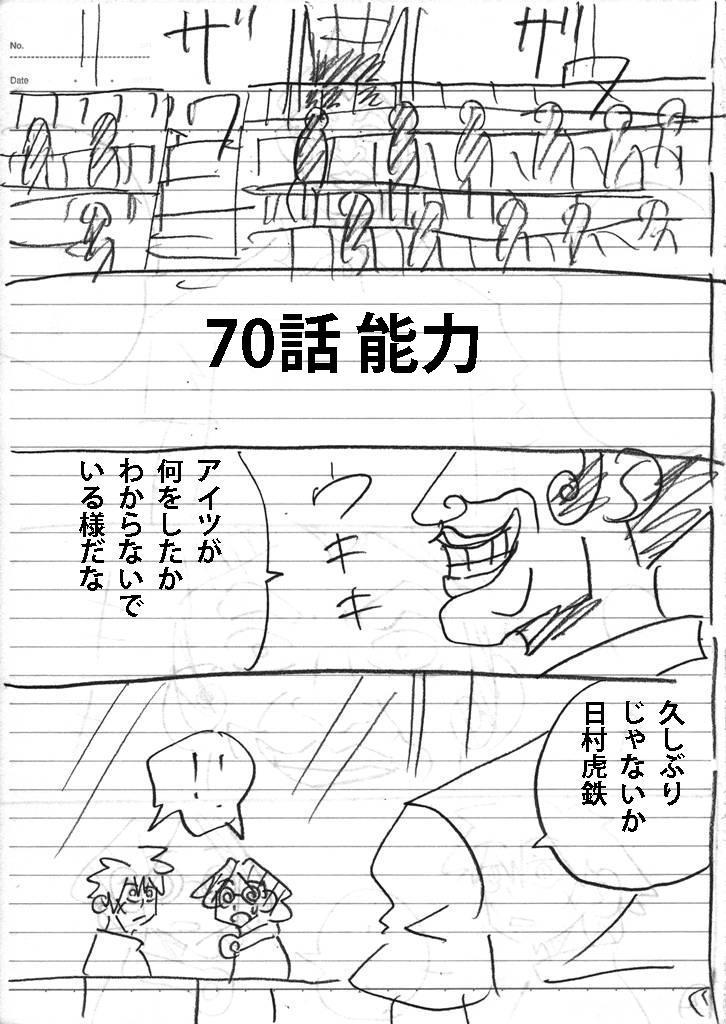 No.
Date
ザワ
ザワ
70話 能力
ウキキ
アイツが
何をしたか
わからないで
いる様だな
久しぶり
じゃないか
日村虎鉄
!!